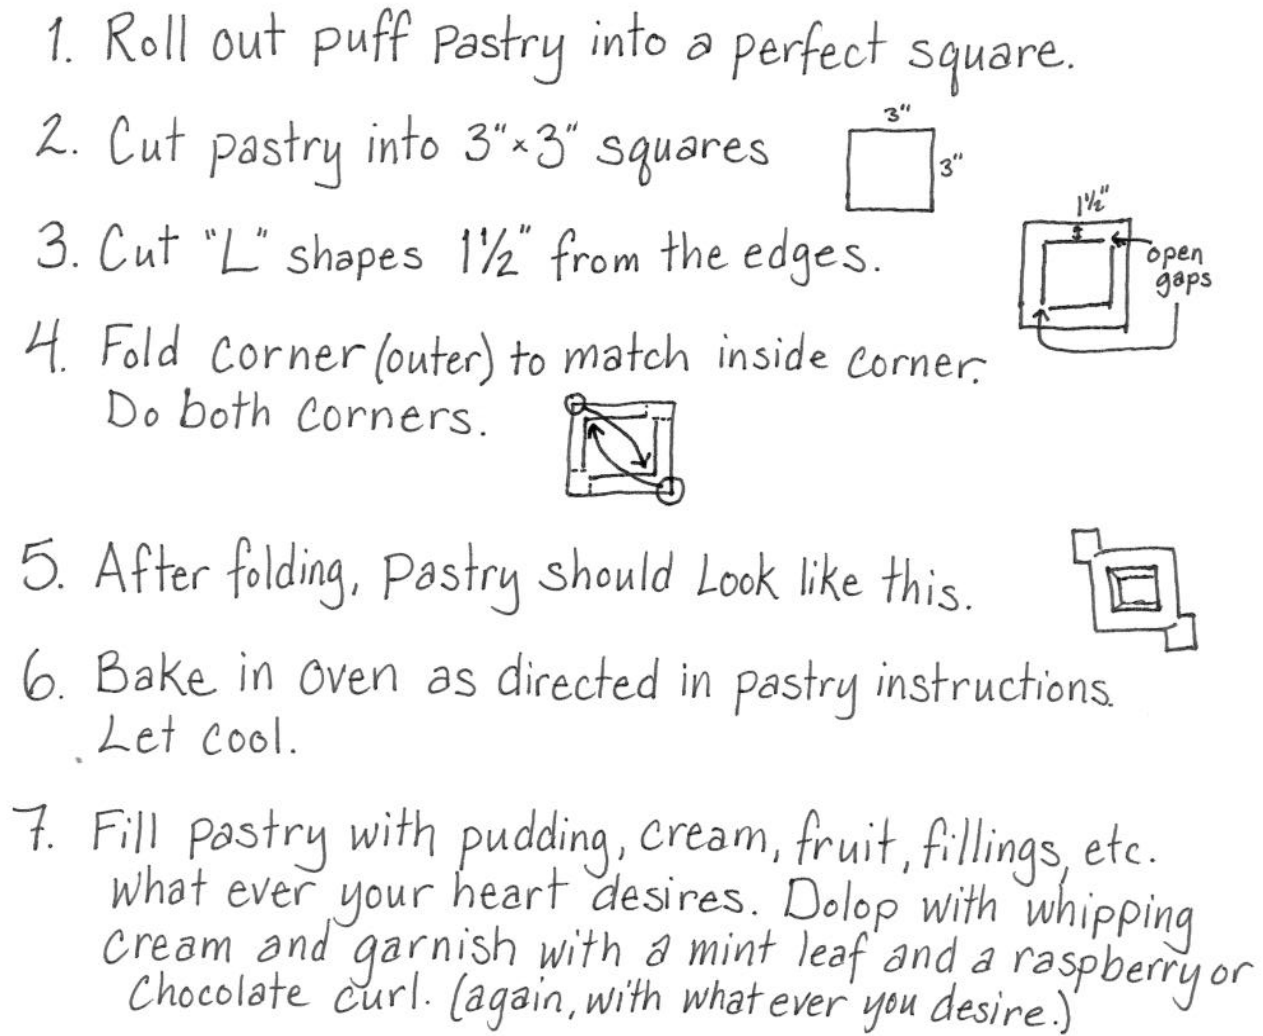 1. Roll out puff Pastry into a perfect square.
2. Cut pastry into 3"×3" squares
3"
3"
3. Cut "L" shapes 1½" from the edges.
1½"
open
gaps
4. Fold corner (outer) to match inside corner.
Do both corners.
5. After folding, Pastry should Look like this.
6. Bake in oven as directed in pastry instructions.
Let cool.
7. Fill pastry with pudding, cream, fruit, fillings, etc.
What ever your heart desires. Dolop with whipping
cream and garnish with a mint leaf and a raspberry or
Chocolate curl. (again, with what ever you desire.)